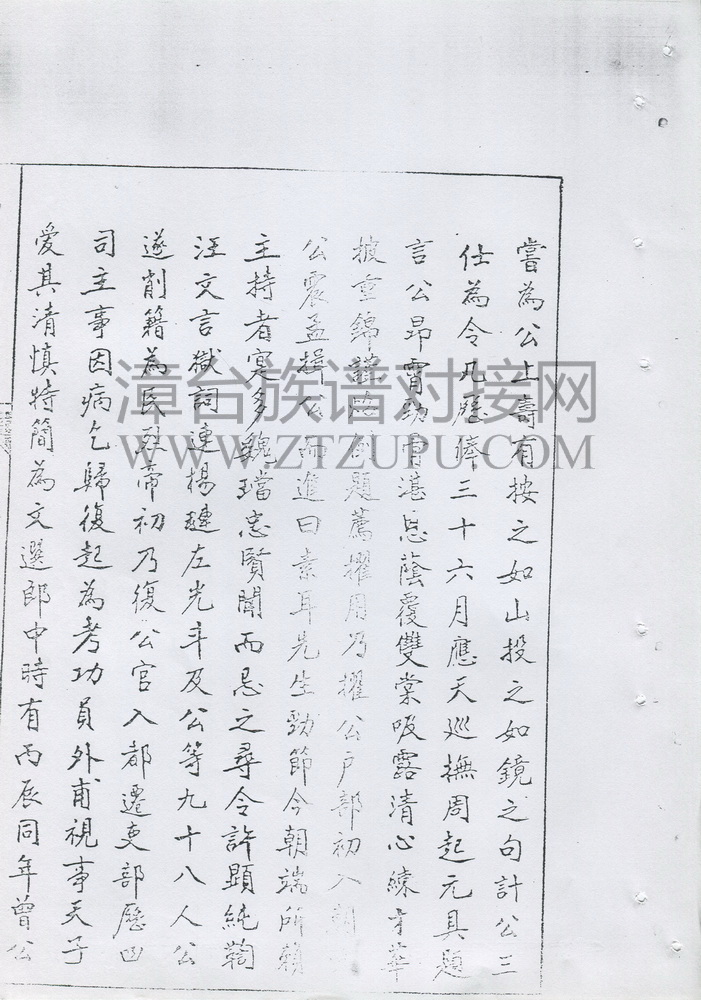 嘗為公上壽有按之如山投之如鏡之句計公三
仕為令凡歷俸三十六月應天巡撫周起元具題
言公昂霄勁骨湛恩蔭覆雙棠吸露清心練才華
披重錦 題薦擢用乃擢公户部初入朝
公震孟揖公而進曰素耳先生勁節今朝端所賴
主持者寔多魏璫忠賢聞而忌之尋令許顯純鞫
汪文言獄詞連楊璉左光斗及公等九十八人公
遂削籍為民烈帝初乃復公官入都遷吏部歷四
司主事因病乞歸復起為考功員外甫視事天子
愛其清慎特簡為文選郎中時有丙辰同年曾公
漳台族谱对接网
WWW.ZTZUPU.COM